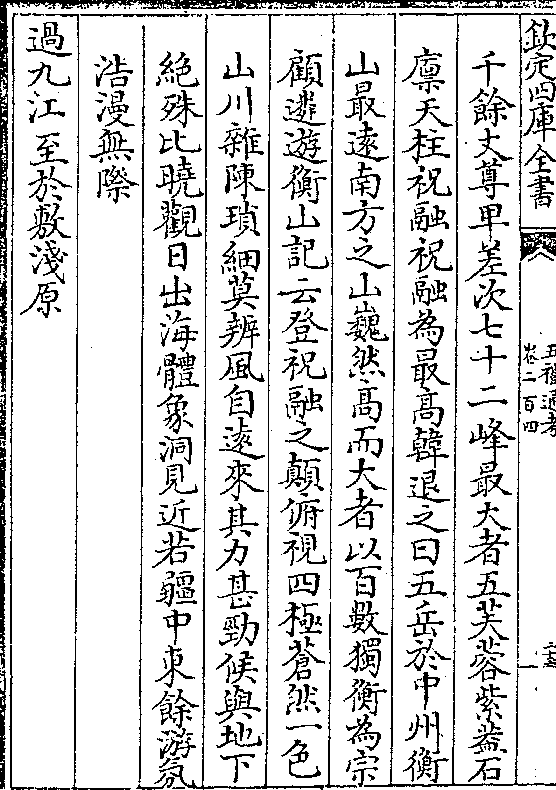 欽定四庫全書
五禮通考
卷二百四
千餘丈尊卑差次七十二峰最大者五芙蓉紫蓋石
廩天柱祝融祝融為最髙韓退之曰五岳於中州衡
山最逺南方之山巍然髙而大者以百數獨衡為宗
顧遴遊衡山記云登祝融之顛俯視四極蒼然一色
山川雜陳瑣細莫辨風自逺來其力甚勁候與地下
絶殊比曉觀日出海體象洞見近若疆中東餘游氛
浩漫無際
過九江至於敷淺原